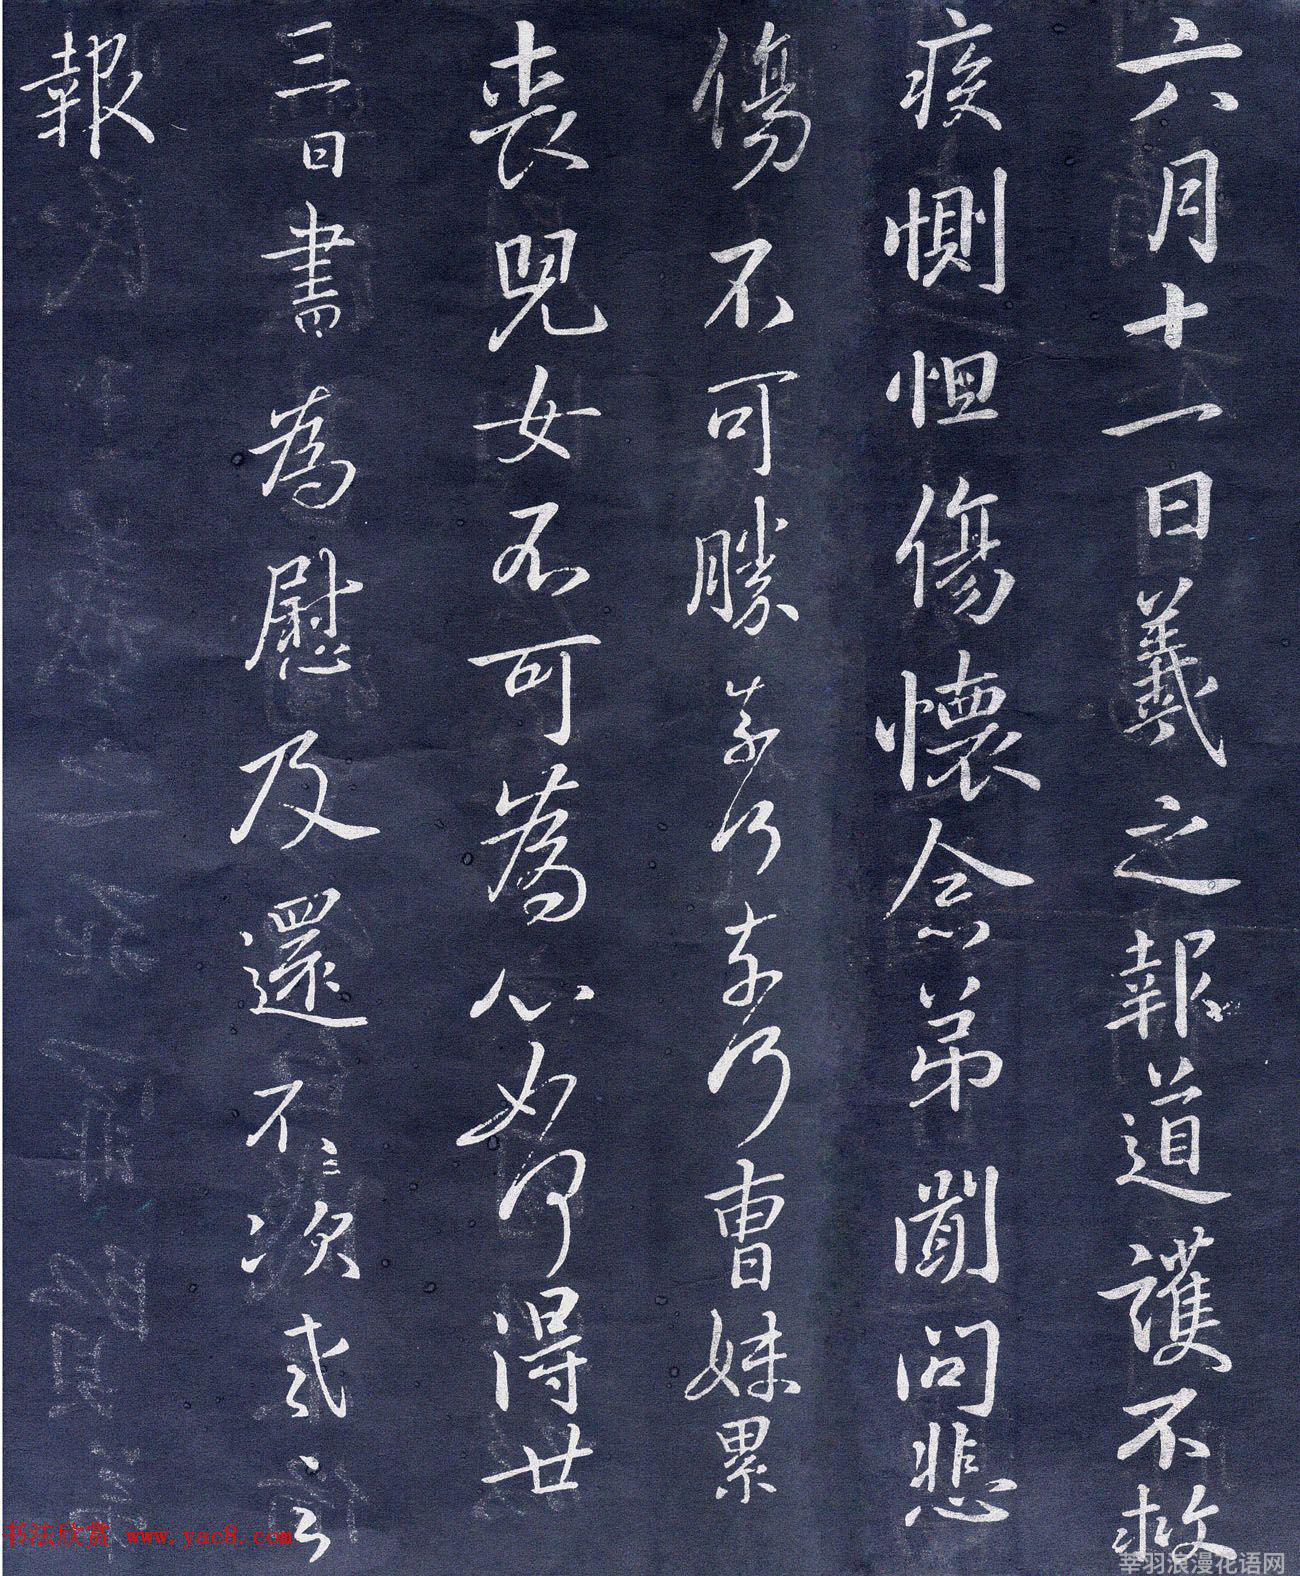 六月十一日羲之報道護不救
疾惻怛傷懷念弟聞問悲
傷不可勝奈何奈何曹妹累
喪兒女不可為心如何得廿
三日書為慰及還不次羲之
報
书法欣赏 www.yac8.com
莘羽浪漫花语网